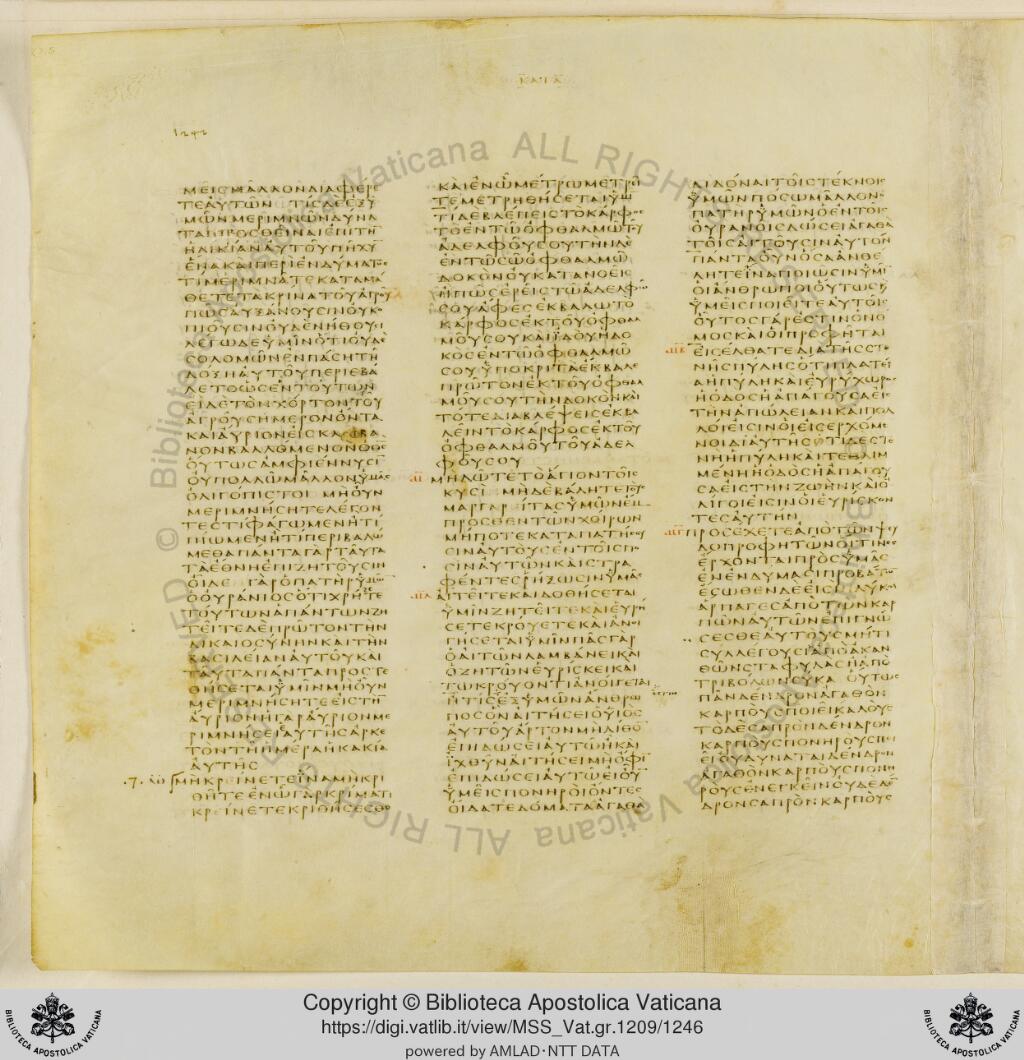 ΚΑΤΑ
1242
ΜΕΙΣ ΜΑΛΛΟΝ ΔΙΑΦΕΡΕ
ΤΕ ΑΥΤΩΝ ΤΙΣ ΔΕ ΕΞ Υ
ΜΩΝ ΜΕΡΙΜΝΩΝ ΔΥΝΑ
ΤΑΙ ΠΡΟΣΘΕΙΝΑΙ ΕΠΙ ΤΗ
ΗΛΙΚΙΑΝ ΑΥΤΟΥ ΠΗΧΥ
ΕΝΑ ΚΑΙ ΠΕΡΙ ΕΝΔΥΜΑΤΟΣ
ΤΙ ΜΕΡΙΜΝΑΤΕ ΚΑΤΑΜΑ
ΘΕΤΕ ΤΑ ΚΡΙΝΑ ΤΟΥ ΑΓΡΟΥ
ΠΩΣ ΑΥΞΑΝΟΥΣΙΝ ΟΥ ΚΟ
ΠΙΟΥΣΙΝ ΟΥΔΕ ΝΗΘΟΥΣΙ
ΛΕΓΩ ΔΕ ΥΜΙΝ ΟΤΙ ΟΥΔΕ
ΣΟΛΟΜΩΝ ΕΝ ΠΑΣΗ ΤΗ
ΔΟΞΗ ΑΥΤΟΥ ΠΕΡΙΕΒΑ
ΛΕΤΟ ΩΣ ΕΝ ΤΟΥΤΩΝ
ΕΙ ΔΕ ΤΟΝ ΧΟΡΤΟΝ ΤΟΥ
ΑΓΡΟΥ ΣΗΜΕΡΟΝ ΟΝΤΑ
ΚΑΙ ΑΥΡΙΟΝ ΕΙΣ ΚΛΙΒΑ
ΝΟΝ ΒΑΛΛΟΜΕΝΟΝ Ο ΘΣ
ΟΥΤΩΣ ΑΜΦΙΕΝΝΥΣΙ
ΟΥ ΠΟΛΛΩ ΜΑΛΛΟΝ ΥΜΑΣ
ΟΛΙΓΟΠΙΣΤΟΙ ΜΗ ΟΥΝ
ΜΕΡΙΜΝΗΣΗΤΕ ΛΕΓΟΝ
ΤΕΣ ΤΙ ΦΑΓΩΜΕΝ Η ΤΙ
ΠΙΩΜΕΝ Η ΤΙ ΠΕΡΙΒΑΛΩ
ΜΕΘΑ ΠΑΝΤΑ ΓΑΡ ΤΑΥΤΑ
ΤΑ ΕΘΝΗ ΕΠΙΖΗΤΟΥΣΙΝ
ΟΙΔΕ ΓΑΡ Ο ΠΑΤΗΡ ΥΜΩΝ
Ο ΟΥΡΑΝΙΟΣ ΟΤΙ ΧΡΗΖΕΤΕ
ΤΟΥΤΩΝ ΑΠΑΝΤΩΝ ΖΗ
ΤΕΙΤΕ ΔΕ ΠΡΩΤΟΝ ΤΗΝ
ΔΙΚΑΙΟΣΥΝΗΝ ΚΑΙ ΤΗΝ
ΒΑΣΙΛΕΙΑΝ ΑΥΤΟΥ ΚΑΙ
ΤΑΥΤΑ ΠΑΝΤΑ ΠΡΟΣΤΕ
ΘΗΣΕΤΑΙ ΥΜΙΝ ΜΗ ΟΥΝ
ΜΕΡΙΜΝΗΣΗΤΕ ΕΙΣ ΤΗ
ΑΥΡΙΟΝ Η ΓΑΡ ΑΥΡΙΟΝ ΜΕ
ΡΙΜΝΗΣΕΙ ΑΥΤΗΣ ΑΡΚΕ
ΤΟΝ ΤΗ ΗΜΕΡΑ Η ΚΑΚΙΑ
ΑΥΤΗΣ
.7. ΜΗ ΚΡΕΙΝΕΤΕ ΙΝΑ ΜΗ ΚΡΙ
ΘΗΤΕ ΕΝ Ω ΓΑΡ ΚΡΙΜΑΤΙ
ΚΡΕΙΝΕΤΕ ΚΡΙΘΗΣΕΣΘΕ
ΚΑΙ ΕΝ Ω ΜΕΤΡΩ ΜΕΤΡΕΙ
ΤΕ ΜΕΤΡΗΘΗΣΕΤΑΙ ΥΜΙ
ΤΙ ΔΕ ΒΛΕΠΕΙΣ ΤΟ ΚΑΡΦΟΣ
ΤΟ ΕΝ ΤΩ ΟΦΘΑΛΜΩ ΤΟΥ
ΑΔΕΛΦΟΥ ΣΟΥ ΤΗΝ ΔΕ
ΕΝ ΤΩ ΣΩ ΟΦΘΑΛΜΩ
ΔΟΚΟΝ ΟΥ ΚΑΤΑΝΟΕΙΣ
Η ΠΩΣ ΕΡΕΙΣ ΤΩ ΑΔΕΛΦΩ
ΣΟΥ ΑΦΕΣ ΕΚΒΑΛΩ ΤΟ
ΚΑΡΦΟΣ ΕΚ ΤΟΥ ΟΦΘΑΛ
ΜΟΥ ΣΟΥ ΚΑΙ ΙΔΟΥ Η ΔΟ
ΚΟΣ ΕΝ ΤΩ ΟΦΘΑΛΜΩ
ΣΟΥ ΥΠΟΚΡΙΤΑ ΕΚΒΑΛΕ
ΠΡΩΤΟΝ ΕΚ ΤΟΥ ΟΦΘΑΛ
ΜΟΥ ΣΟΥ ΤΗΝ ΔΟΚΟΝ ΚΑΙ
ΤΟΤΕ ΔΙΑΒΛΕΨΕΙΣ ΕΚΒΑ
ΛΕΙΝ ΤΟ ΚΑΡΦΟΣ ΕΚ ΤΟΥ
ΟΦΘΑΛΜΟΥ ΤΟΥ ΑΔΕΛ
ΦΟΥ ΣΟΥ
ΜΗ ΔΩΤΕ ΤΟ ΑΓΙΟΝ ΤΟΙΣ
ΚΥΣΙ ΜΗΔΕ ΒΑΛΗΤΕ ΤΟΥΣ
ΜΑΡΓΑΡΙΤΑΣ ΥΜΩΝ ΕΜ
ΠΡΟΣΘΕΝ ΤΩΝ ΧΟΙΡΩΝ
ΜΗΠΟΤΕ ΚΑΤΑΠΑΤΗΣΟΥ
ΣΙΝ ΑΥΤΟΥΣ ΕΝ ΤΟΙΣ ΠΟ
ΣΙΝ ΑΥΤΩΝ ΚΑΙ ΣΤΡΑ
ΦΕΝΤΕΣ ΡΗΞΩΣΙΝ ΥΜΑΣ
ΑΙΤΕΙΤΕ ΚΑΙ ΔΟΘΗΣΕΤΑΙ
ΥΜΙΝ ΖΗΤΕΙΤΕ ΚΑΙ ΕΥΡΗ
ΣΕΤΕ ΚΡΟΥΕΤΕ ΚΑΙ ΑΝΟΙ
ΓΗΣΕΤΑΙ ΥΜΙΝ ΠΑΣ ΓΑΡ
Ο ΑΙΤΩΝ ΛΑΜΒΑΝΕΙ ΚΑΙ
Ο ΖΗΤΩΝ ΕΥΡΙΣΚΕΙ ΚΑΙ
ΤΩ ΚΡΟΥΟΝΤΙ ΑΝΟΙΓΕΤΑΙ
Η ΤΙΣ ΕΞ ΥΜΩΝ ΑΝΘΡΩ
ΠΟΣ ΟΝ ΑΙΤΗΣΕΙ Ο ΥΙΟΣ
ΑΥΤΟΥ ΑΡΤΟΝ ΜΗ ΛΙΘΟ
ΕΠΙΔΩΣΕΙ ΑΥΤΩ Η ΚΑΙ
ΙΧΘΥΝ ΑΙΤΗΣΕΙ ΜΗ ΟΦΙ
ΕΠΙΔΩΣΕΙ ΑΥΤΩ ΕΙ ΟΥ
ΥΜΕΙΣ ΠΟΝΗΡΟΙ ΟΝΤΕΣ
ΟΙΔΑΤΕ ΔΟΜΑΤΑ ΑΓΑΘΑ
ΔΙΔΟΝΑΙ ΤΟΙΣ ΤΕΚΝΟΙΣ
ΥΜΩΝ ΠΟΣΩ ΜΑΛΛΟΝ
Ο ΠΑΤΗΡ ΥΜΩΝ Ο ΕΝ ΤΟΙΣ
ΟΥΡΑΝΟΙΣ ΔΩΣΕΙ ΑΓΑΘΑ
ΤΟΙΣ ΑΙΤΟΥΣΙΝ ΑΥΤΟΝ
ΠΑΝΤΑ ΟΥΝ ΟΣΑ ΑΝ ΘΕ
ΛΗΤΕ ΙΝΑ ΠΟΙΩΣΙΝ ΥΜΙ
ΟΙ ΑΝΘΡΩΠΟΙ ΟΥΤΩΣ Κ
ΥΜΕΙΣ ΠΟΙΕΙΤΕ ΑΥΤΟΙΣ
ΟΥΤΟΣ ΓΑΡ ΕΣΤΙΝ Ο ΝΟ
ΜΟΣ ΚΑΙ ΟΙ ΠΡΟΦΗΤΑΙ
ΕΙΣΕΛΘΑΤΕ ΔΙΑ ΤΗΣ ΣΤΕ
ΝΗΣ ΠΥΛΗΣ ΟΤΙ ΠΛΑΤΕΙ
Α Η ΠΥΛΗ ΚΑΙ ΕΥΡΥΧΩΡΟΣ
Η ΟΔΟΣ Η ΑΠΑΓΟΥΣΑ ΕΙΣ
ΤΗΝ ΑΠΩΛΕΙΑΝ ΚΑΙ ΠΟΛ
ΛΟΙ ΕΙΣΙΝ ΟΙ ΕΙΣΕΡΧΟΜΕ
ΝΟΙ ΔΙ ΑΥΤΗΣ ΟΤΙ ΔΕ ΣΤΕ
ΝΗ Η ΠΥΛΗ ΚΑΙ ΤΕΘΛΙΜ
ΜΕΝΗ Η ΟΔΟΣ Η ΑΠΑΓΟΥ
ΣΑ ΕΙΣ ΤΗΝ ΖΩΗΝ ΚΑΙ Ο
ΛΙΓΟΙ ΕΙΣΙΝ ΟΙ ΕΥΡΙΣΚΟΝ
ΤΕΣ ΑΥΤΗΝ
ΠΡΟΣΕΧΕΤΕ ΑΠΟ ΤΩΝ ΨΕΥ
ΔΟΠΡΟΦΗΤΩΝ ΟΙΤΙΝΕΣ
ΕΡΧΟΝΤΑΙ ΠΡΟΣ ΥΜΑΣ
ΕΝ ΕΝΔΥΜΑΣΙ ΠΡΟΒΑΤΩΝ
ΕΣΩΘΕΝ ΔΕ ΕΙΣΙ ΛΥΚΟΙ
ΑΡΠΑΓΕΣ ΑΠΟ ΤΩΝ ΚΑΡ
ΠΩΝ ΑΥΤΩΝ ΕΠΙΓΝΩ
ΣΕΣΘΕ ΑΥΤΟΥΣ ΜΗΤΙ
ΣΥΛΛΕΓΟΥΣΙ ΑΠΟ ΑΚΑΝ
ΘΩΝ ΣΤΑΦΥΛΑΣ Η ΑΠΟ
ΤΡΙΒΟΛΩΝ ΣΥΚΑ ΟΥΤΩΣ
ΠΑΝ ΔΕΝΔΡΟΝ ΑΓΑΘΟΝ
ΚΑΡΠΟΥΣ ΠΟΙΕΙ ΚΑΛΟΥΣ
ΤΟ ΔΕ ΣΑΠΡΟΝ ΔΕΝΔΡΟΝ
ΚΑΡΠΟΥΣ ΠΟΝΗΡΟΥΣ ΠΟΙ
ΕΙ ΟΥ ΔΥΝΑΤΑΙ ΔΕΝΔΡΟΝ
ΑΓΑΘΟΝ ΚΑΡΠΟΥΣ ΠΟΝΗ
ΡΟΥΣ ΕΝΕΓΚΕΙΝ ΟΥΔΕ ΔΕ
ΔΡΟΝ ΣΑΠΡΟΝ ΚΑΡΠΟΥΣ
© Biblioteca Apostolica Vaticana ALL RIGHTS RESERVED
BIBLIOTECA APOSTOLICA VATICANA
Copyright © Biblioteca Apostolica Vaticana
https://digi.vatlib.it/view/MSS_Vat.gr.1209/1246
powered by AMLAD·NTT DATA
BIBLIOTECA APOSTOLICA VATICANA